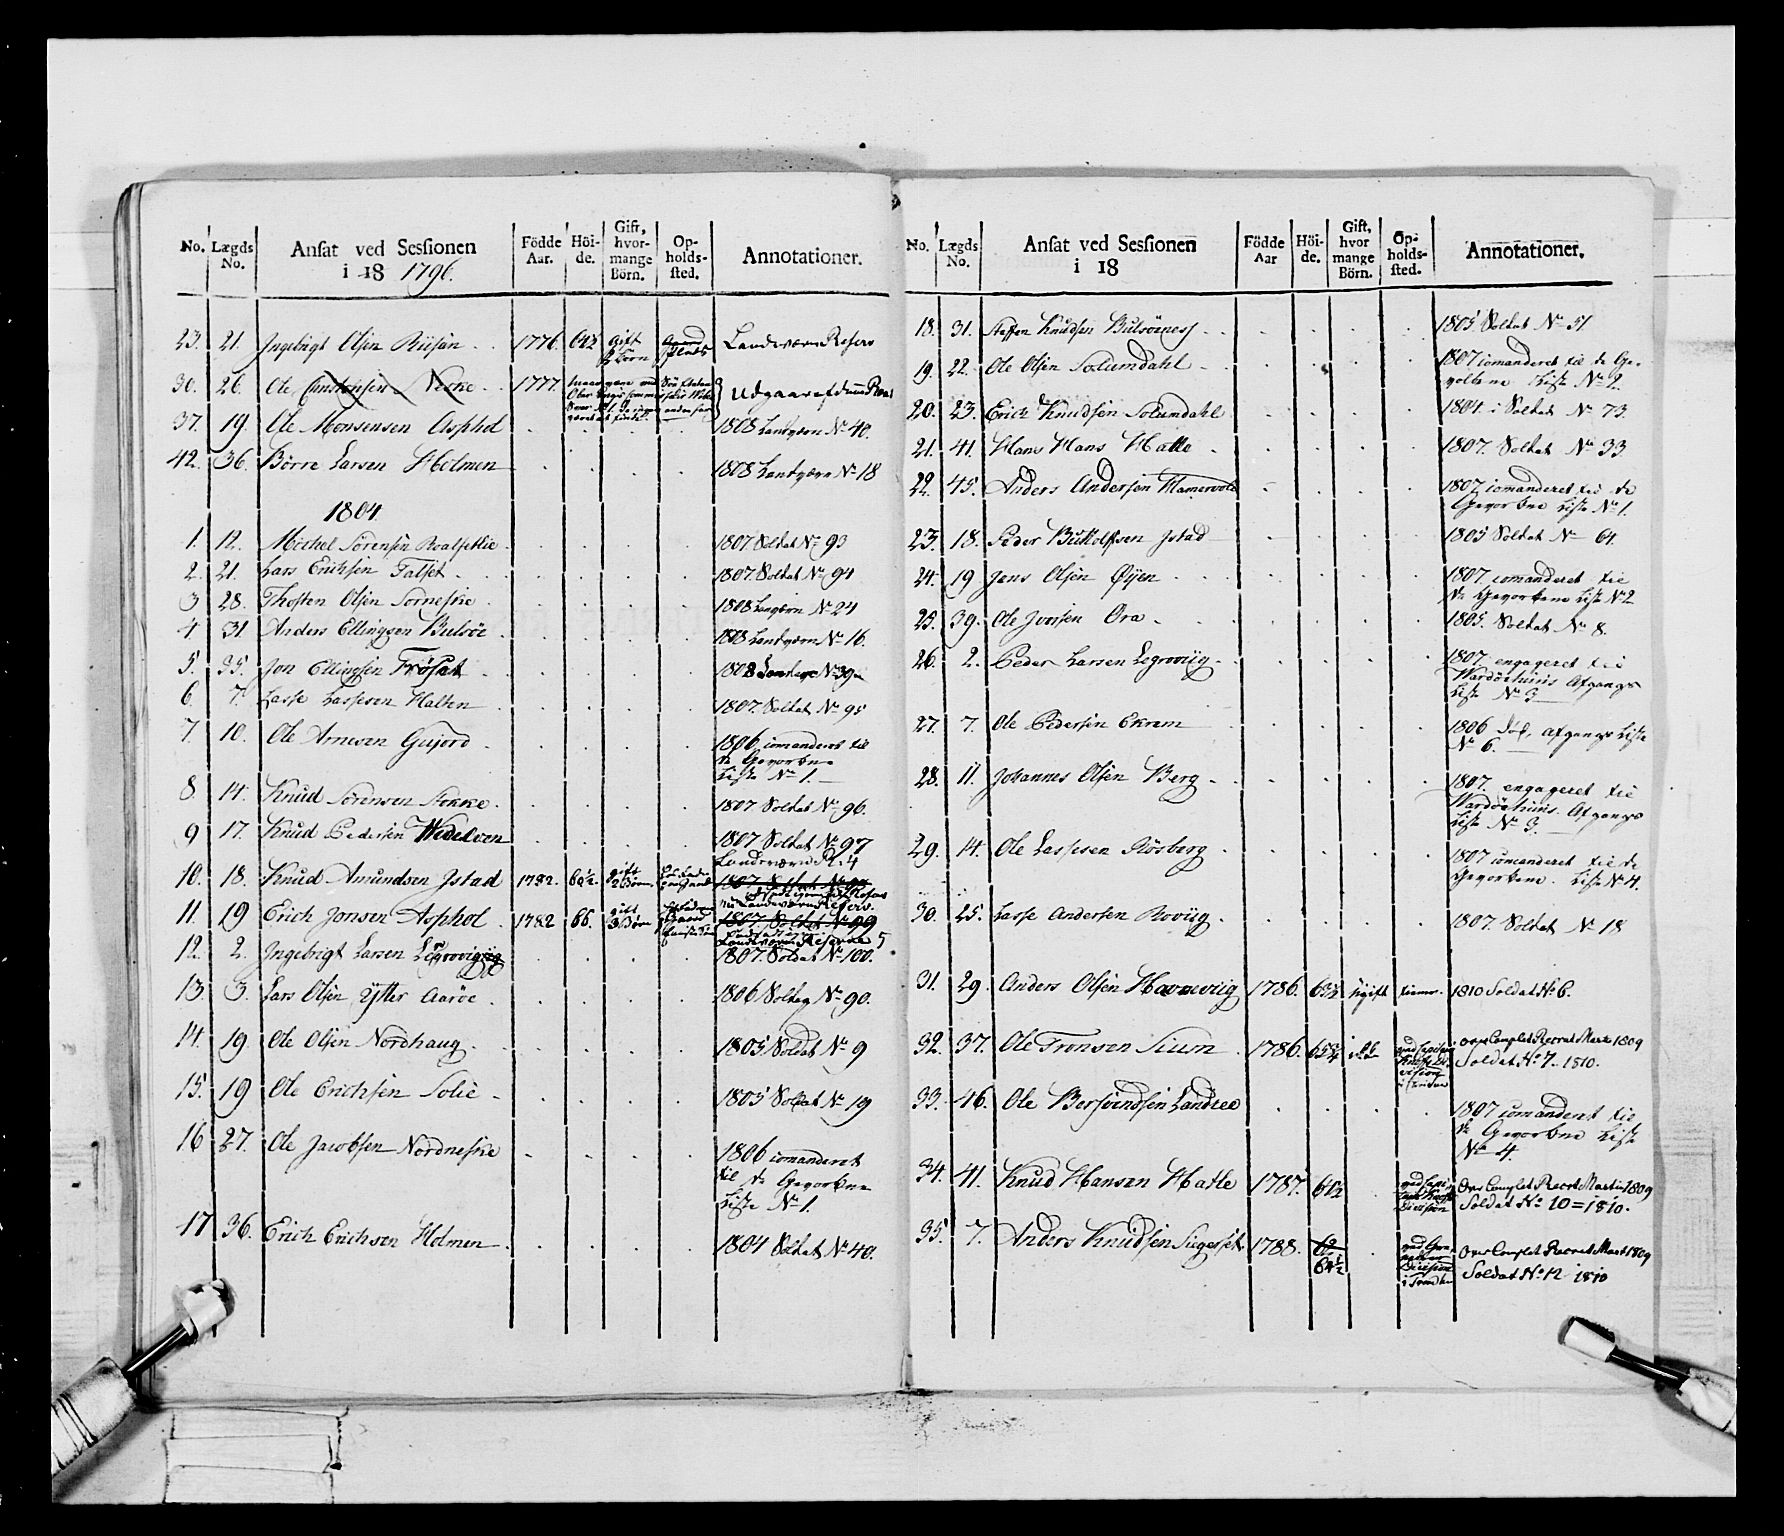 No. Lægds No. Ansat ved Sessionen i 18 1796. Födde Aar. Höide. Gift, hvormange Börn. Opholdssted. Annotationer.
23. 21. Ingebrigt Olsen Riisøen 1776. 64½ gift Landeværn Reserv
30. 26. Ole 1777.
37. 19. Ole Monsensen Asphol 1808 Landværn No 40.
42. 36. Börre Larsen Holmen 1808 Landværn No 18
1804.
1. 12. Michel Sörensen Roalsetlie 1807 Soldat No 93
2. 21. Lars Erichsen Falset 1807. Soldat No 94
3 28. Thosten Olsen Torneske 1808 Landværn No 24
4 31 Anders Ellingsen Bulsöe 1808 Landværn No 16.
5. 35. Jon Ellingsen Frösæt 1808 No 39
6 7. Lasse Lassesen Halten 1807. Soldat No 95
7. 10. Ole Arnesen Gujord 1806 comanderet til
de Gevorbne
Liste No 1.
8. 14. Knud Sörensen Stokke 1807 Soldat No 96.
9 17. Knud Pedersen Wedelven 1807 Soldat No 97
10. 18. Knud Amundsen Istad 1782. 60½. gift 2 Börn Landeværn R. 4
11. 19 Erich Jonsen Asphol 1782 66. gift 3 Börn 1807. Soldat No 99
Landeværn Reserve 5
12. 2. Ingebrigt Larsen 1807. Soldat No 100.
13. 3. Lars Olsen Ytter Aaröe 1806 Soldat No 90.
14. 19. Ole Olsen Nordhaug 1805 Soldat No 9
15. 19 Ole Erichsen Solie 1805 Soldat No 19
16 27. Ole Jacobsen Nordneske 1806 comanderet
til de Gevorbne
Liste No 1.
17 36. Erich Erichsen Holmen 1804 Soldat No 40.
No. Lægds No. Ansat ved Sessionen i 18 Födde Aar Höide. Gift, hvor mange Börn. Opholdssted. Annotationer.
18. 31. Steffen Knudsen Bulsöenes 1805 Soldat No 51
19. 22. Ole Olsen Solemdahl 1807 comanderet til de Ge-
volbne Liste No 2.
20. 23. Erich Knudsen Solemdahl 1804 Soldat No 73
21. 41. Hans Hans Hatle 1807. Soldat No 33
22. 45. Anders Andersen Hamervold 1807 comanderet til de
Gevorbne Liste No 1.
23. 18. Peder Istad 1805 Soldat No 61.
24. 19 Jens Olsen Øyen 1807. comanderet til
de Gevorbene Liste No 2
25. 39. Ole Iversen Ora 1805. Soldat No 8.
26. 2. Peder Larsen Legroviig 1807 engageret til
Wardöehuus Afgangs
Liste No 3
27. 7. Ole Pedersen Ekrem 1806 död, afgangs Liste
No 6.
28. 11. Johannes Olsen Berg 1807. engageret til
Wardöehuus Afgangs
Liste No 3.
29. 14. Ole Lassesen Rösberg 1807 comanderet til de
Gevorbene. Liste No 4.
30. 25. Lasse Andersen Roviig 1807. Soldat No 18
31. 29. Anders Olsen Havneviig 1786. 63½ Ugift hiemme. 1810 Soldat No 6.
32. 37. Ole Tronsen Sium 1786. Over Complet Recrut Marti 1809
Soldat No 7. 1810.
33. 46. Ole Bersvendsen Landree 1807 comanderet til
de Gevorbne Liste
No 4.
34. 41. Knud Hansen Hatle 1787. 61½ Over Complet Recrt Martii 1809
Division Soldat No 10 = 1810.
35. 7. Anders Knudsen 1788. 64½ Over Complet Recrut Mart 1809
Division Soldat No 12 1810